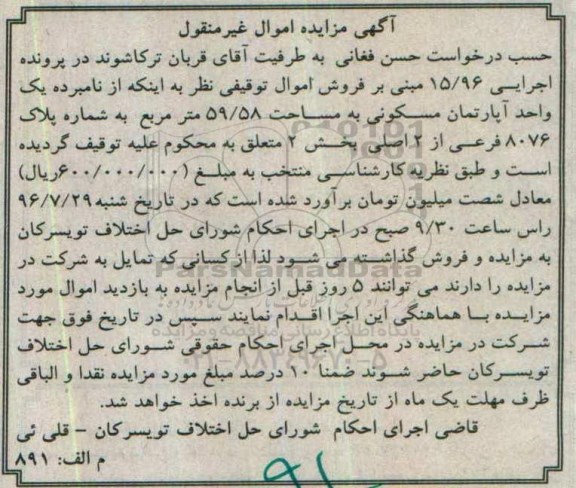 آگهی مزایده اموال غیرمنقول
حسب درخواست حسن فغانی به طرفیت آقای قربان ترکاشوند در پرونده
اجرایی ۱۵/۹۶ مبنی بر فروش اموال توقیفی نظر به اینکه از نامبرده یک
واحد آپارتمان مسکونی به مساحت ۵۹/۵۸ متر مربع به شماره پلاک
۸۰۷۶ فرعی از ۲ اصلی بخش ۲ متعلق به محکوم علیه توقیف گردیده
است و طبق نظریه کارشناسی منتخب به مبلغ (۶۰۰/۰۰۰/۰۰۰ریال)
معادل شصت میلیون تومان برآورد شده است که در تاریخ شنبه ۹۶/۷/۲۹
راس ساعت ۹/۳۰ صبح در اجرای احکام شورای حل اختلاف تویسرکان
به مزایده و فروش گذاشته می شود لذا از کسانی که تمایل به شرکت در
مزایده را دارند می توانند ۵ روز قبل از انجام مزایده به بازدید اموال مورد
مزایده با هماهنگی این اجرا اقدام نمایند سپس در تاریخ فوق جهت
شرکت در مزایده در محل اجرای احکام حقوقی شورای حل اختلاف
تویسرکان حاضر شوند ضمنا ۱۰ درصد مبلغ مورد مزایده نقدا و الباقی
ظرف مهلت یک ماه از تاریخ مزایده از برنده اخذ خواهد شد.
قاضی اجرای احکام شورای حل اختلاف تویسرکان - قلی ئی
م الف: ۸۹۱
ParsNamadData
پایگاه اطلاع رسانی مناقصه و مزایده
۰۲۱-۸۸۳۴۹۶۷۰-۵
۹۱